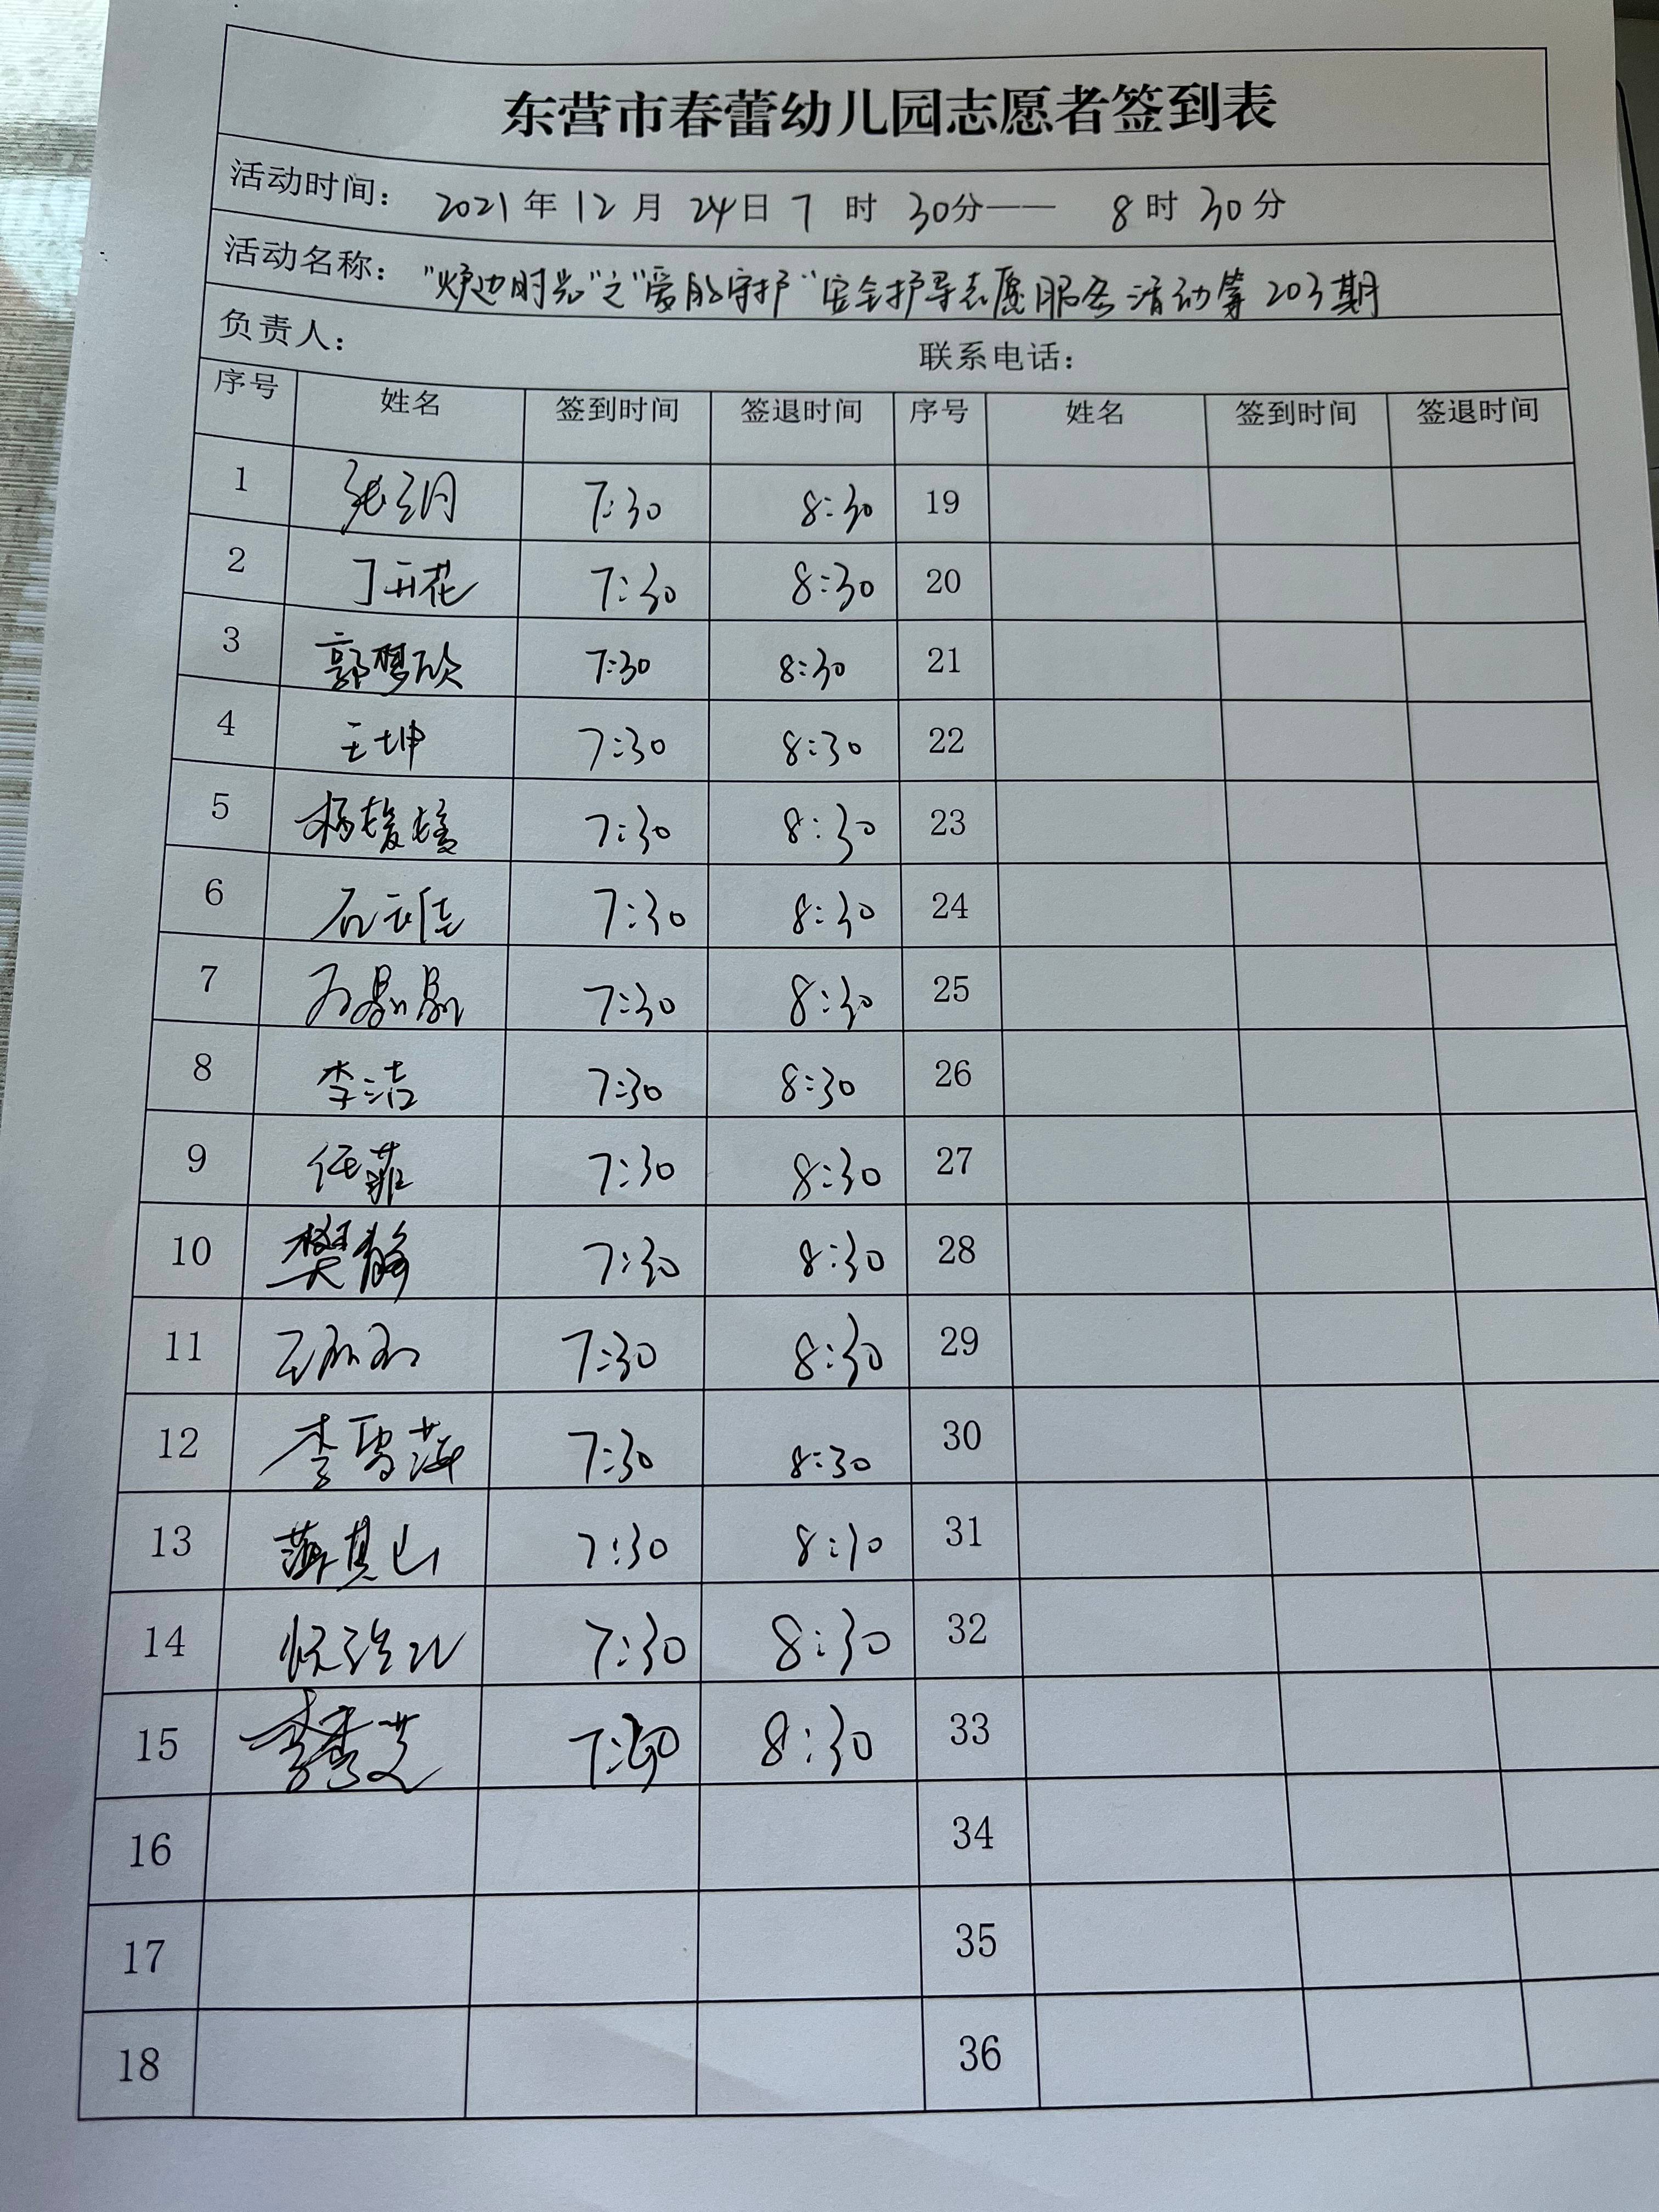 东营市春蕾幼儿园志愿者签到表
活动时间： 2021 年 12 月 24 日 7 时 30 分—— 8 时 30 分
活动名称： "炉边时光"之"爱的守护"安全护导志愿服务活动第203期
负责人： 联系电话：
序号 姓名 签到时间 签退时间 序号 姓名 签到时间 签退时间
1 张 7:30 8:30 19
2 丁开花 7:30 8:30 20
3 郭梦欣 7:30 8:30 21
4 王坤 7:30 8:30 22
5 杨媛媛 7:30 8:30 23
6 石 佳 7:30 8:30 24
7 7:30 8:30 25
8 李洁 7:30 8:30 26
9 任菲 7:30 8:30 27
10 樊静 7:30 8:30 28
11 王 7:30 8:30 29
12 李雪海 7:30 8:30 30
13 薛其山 7:30 8:30 31
14 7:30 8:30 32
15 李秀芝 7:30 8:30 33
16 34
17 35
18 36